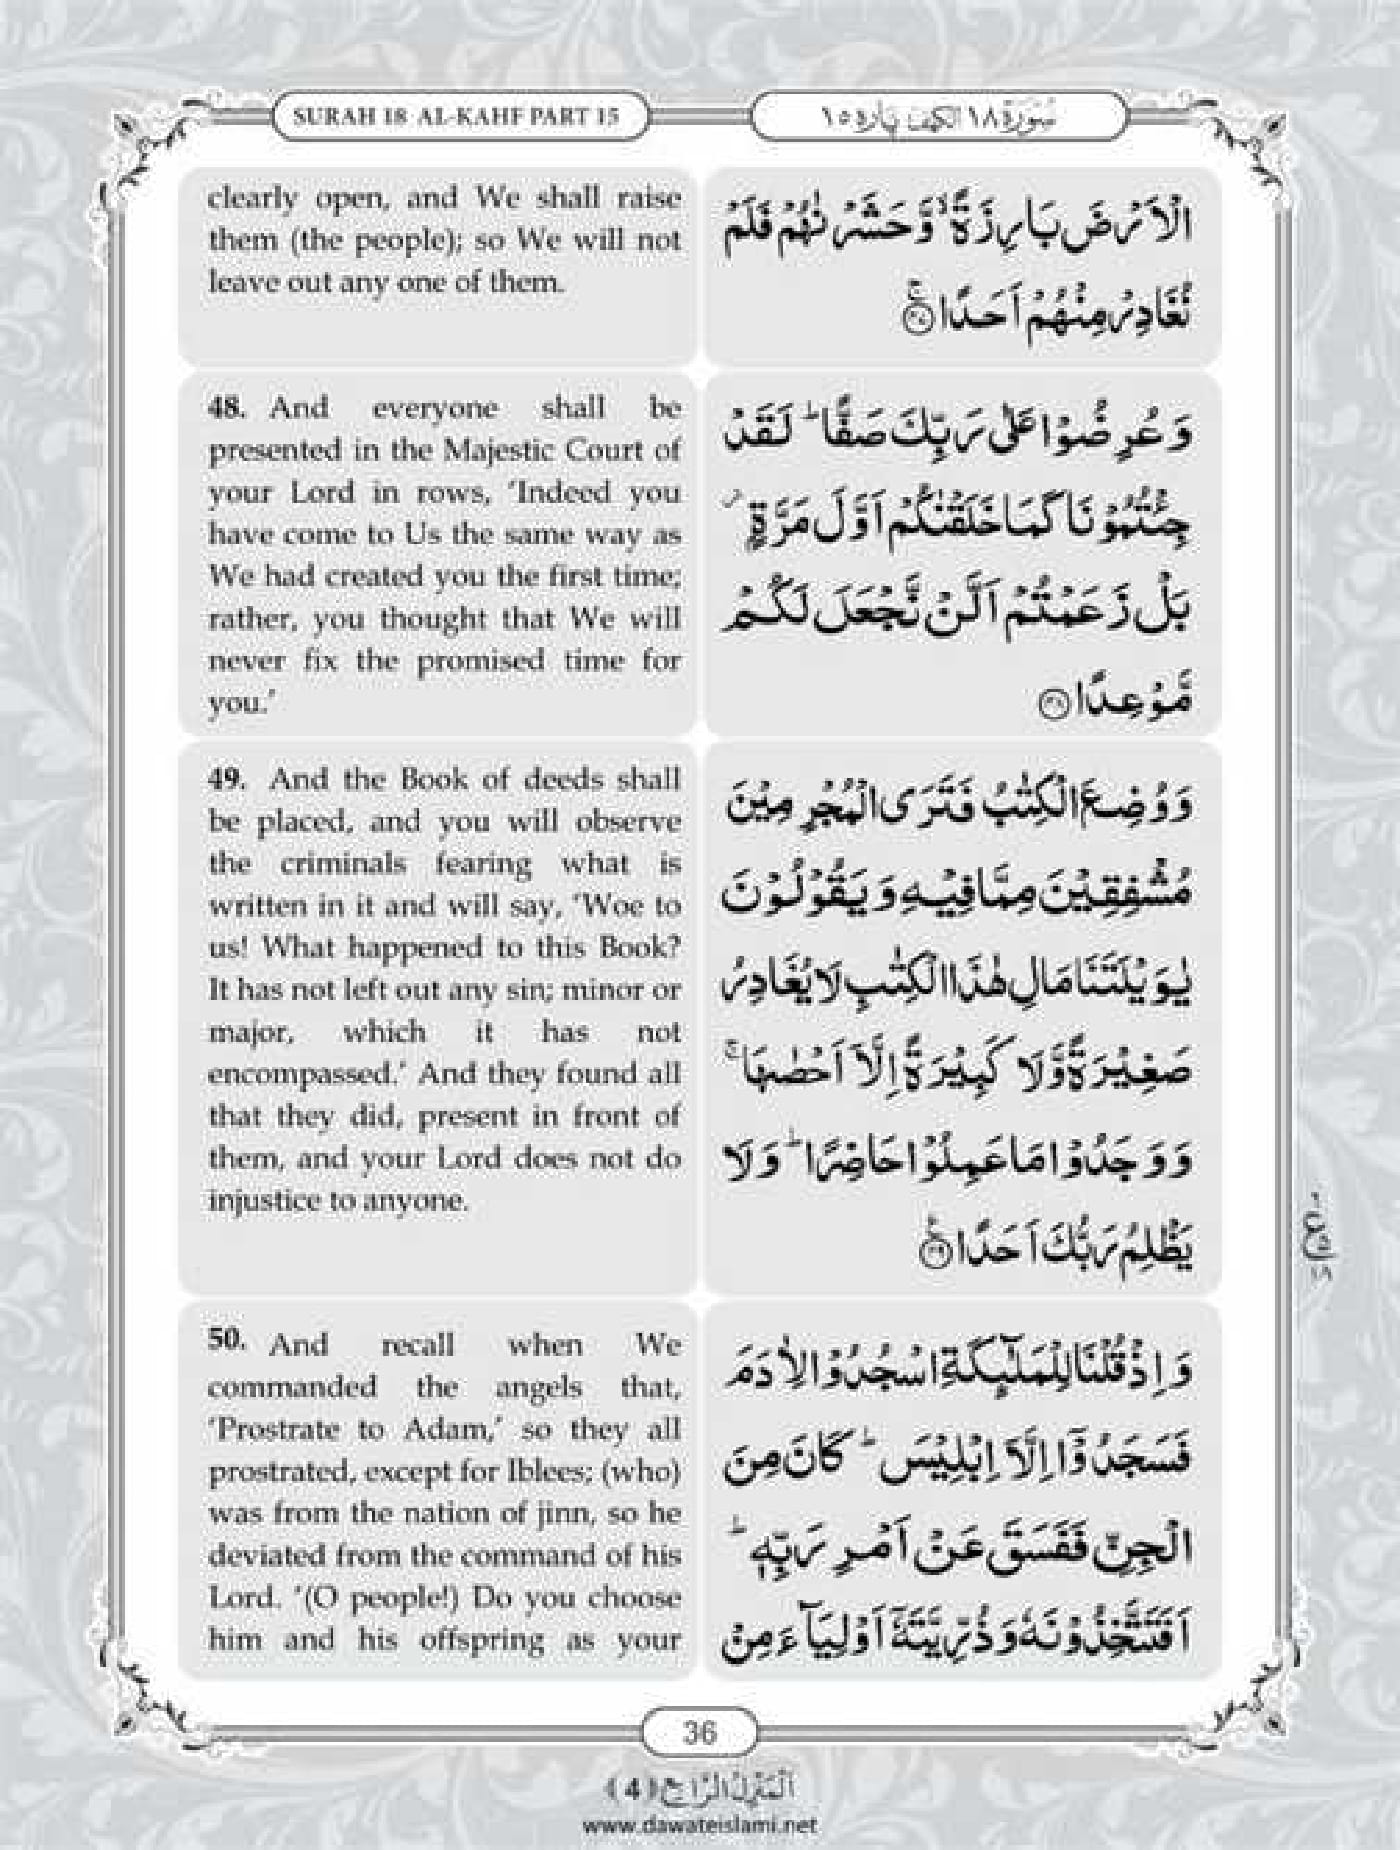 SURAH 18 AL-KAHF PART 15
سُورَة ١٨ الكهف پاره ١٥
clearly open, and We shall raise
them (the people); so We will not
leave out any one of them.
الْاَرْضَ بَارِزَةً ۙ وَّحَشَرْنٰهُمْ فَلَمْ
نُغَادِرْ مِنْهُمْ اَحَدًا ۚ ﴿۴۷﴾
48. And everyone shall be
presented in the Majestic Court of
your Lord in rows, ‘Indeed you
have come to Us the same way as
We had created you the first time;
rather, you thought that We will
never fix the promised time for
you.’
وَ عُرِضُوْا عَلٰى رَبِّكَ صَفًّا ؕ لَقَدْ
جِئْتُمُوْنَا كَمَا خَلَقْنٰكُمْ اَوَّلَ مَرَّةٍۭ ۫
بَلْ زَعَمْتُمْ اَلَّنْ نَّجْعَلَ لَكُمْ
مَّوْعِدًا ﴿۴۸﴾
49. And the Book of deeds shall
be placed, and you will observe
the criminals fearing what is
written in it and will say, ‘Woe to
us! What happened to this Book?
It has not left out any sin; minor or
major, which it has not
encompassed.’ And they found all
that they did, present in front of
them, and your Lord does not do
injustice to anyone.
وَ وُضِعَ الْكِتٰبُ فَتَرَى الْمُجْرِمِيْنَ
مُشْفِقِيْنَ مِمَّا فِيْهِ وَ يَقُوْلُوْنَ
يٰوَيْلَتَنَا مَالِ هٰذَا الْكِتٰبِ لَا يُغَادِرُ
صَغِيْرَةً وَّ لَا كَبِيْرَةً اِلَّاۤ اَحْصٰىهَا ۚ
وَ وَجَدُوْا مَا عَمِلُوْا حَاضِرًا ؕ وَ لَا
يَظْلِمُ رَبُّكَ اَحَدًا ﴿۴۹﴾
50. And recall when We
commanded the angels that,
‘Prostrate to Adam,’ so they all
prostrated, except for Iblees; (who)
was from the nation of jinn, so he
deviated from the command of his
Lord. ‘(O people!) Do you choose
him and his offspring as your
وَ اِذْ قُلْنَا لِلْمَلٰٓىِٕكَةِ اسْجُدُوْا لِاٰدَمَ
فَسَجَدُوْۤا اِلَّاۤ اِبْلِيْسَ ؕ كَانَ مِنَ
الْجِنِّ فَفَسَقَ عَنْ اَمْرِ رَبِّهٖ ؕ
اَفَتَتَّخِذُوْنَهٗ وَ ذُرِّيَّتَهٗۤ اَوْلِيَآءَ مِنْ
36
اَلْمَنْزِلُ الرَّابِع (4)
www.dawateislami.net